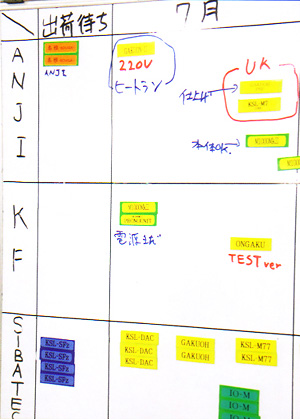 出荷待ち
7月
ANJI
ANJI
220V
ヒートラン
UK
仕上げ
KSL-M7
本体OK.
KF
電源まだ
ONGAKU
TESTver
SIBATEC
KSL-SFz
KSL-SFz
KSL-SFz
KSL-SFz
KSL-DAC
KSL-DAC
KSL-DAC
GAKUOH
GAKUOH
KSL-M77
KSL-M77
IO-M
IO-M